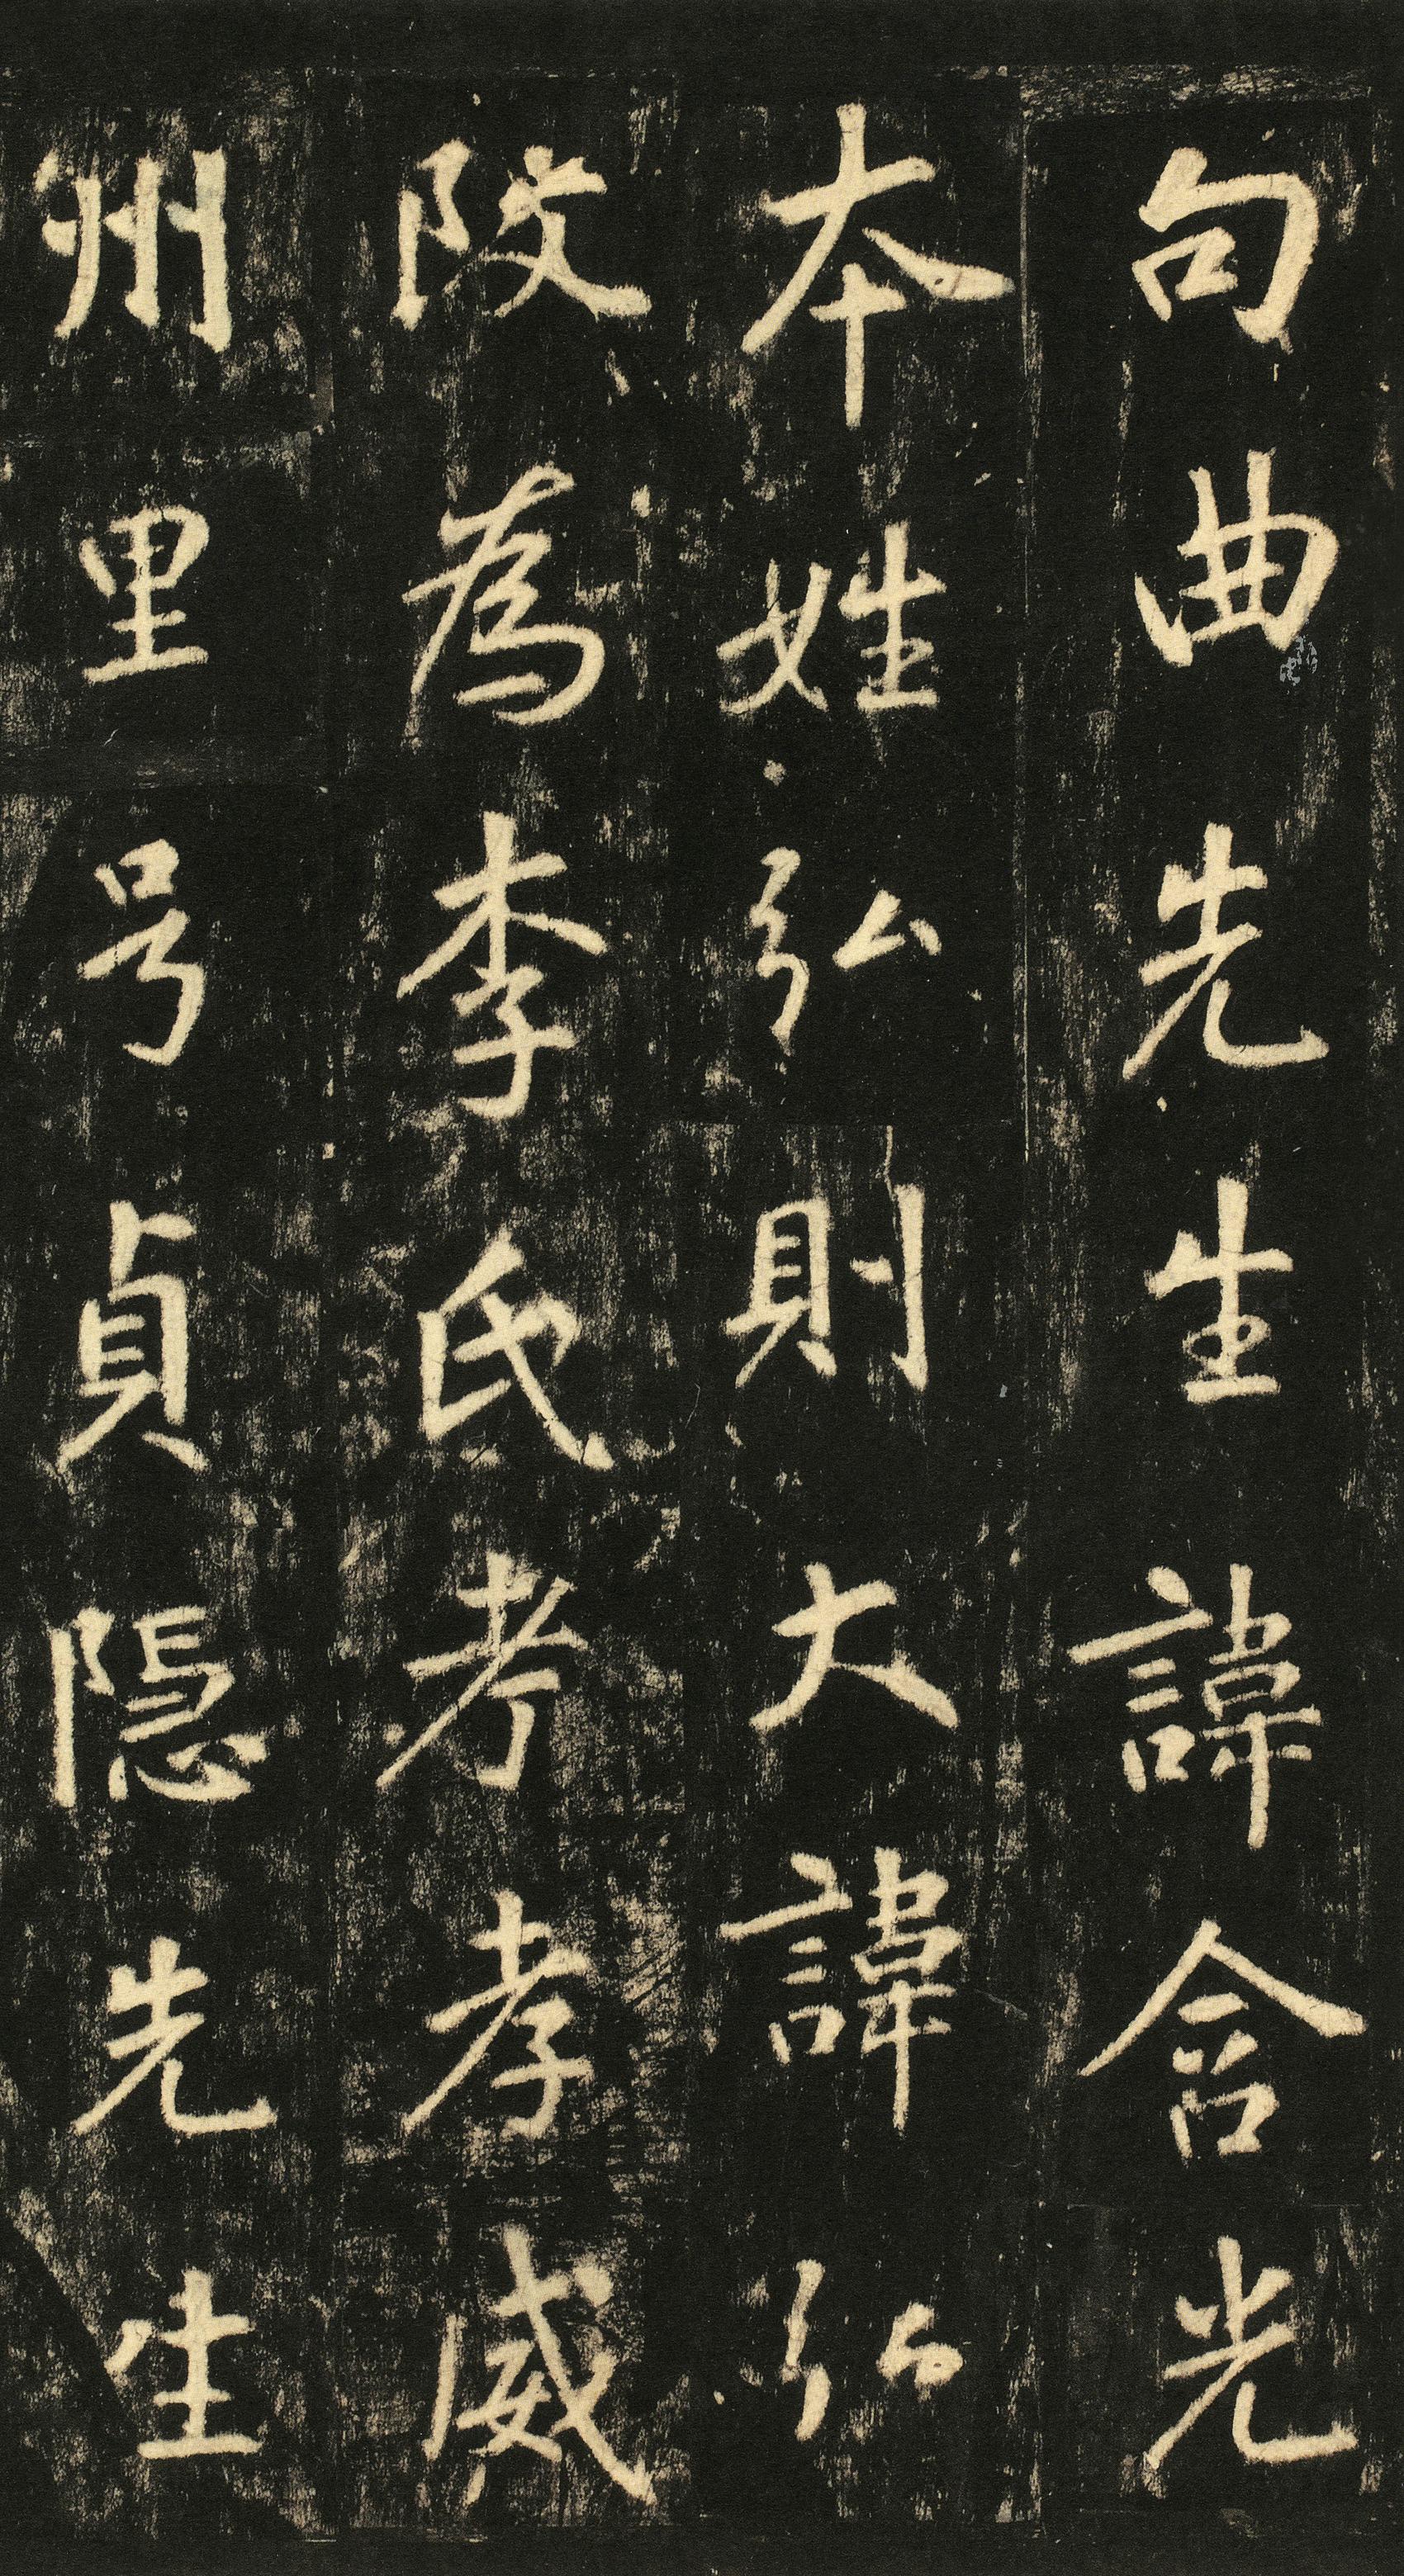 句曲先生諱含光
本姓弘則大諱弘
改為李氏考孝威
州里号貞隱先生